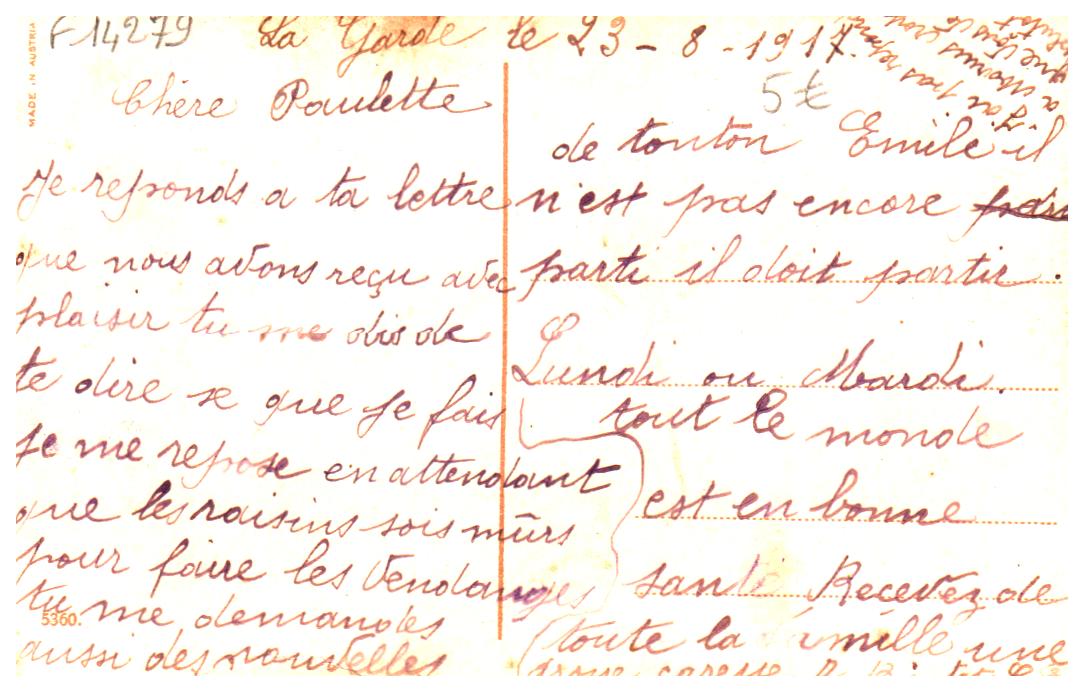 F 14279
MADE IN AUSTRIA
La Garde le 23-8-1917.
5€
Chère Paulette
Je reponds a ta lettre
que nous avons reçu avec
plaisir tu me dis de
te dire se que je fais
je me repose en attendant
que les raisins sois mûrs
pour faire les Vendanges
tu me demandes
aussi des nouvelles
5360.
de tonton Emile il
n'est pas encore
parti il doit partir.
Lundi ou Mardi.
tout le monde
est en bonne
santé Recevez de
toute la famille une
caresse
J'ai pas
a moins
que